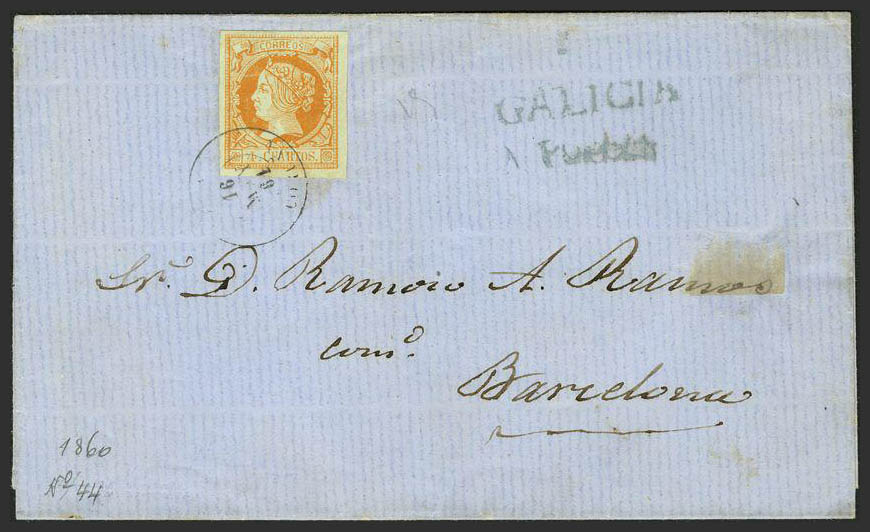 CORREOS
4 CUARTOS.
GALICIA
Sr. D. Ramon A. Ramos
comº.
Barcelona
1860
Nº/44